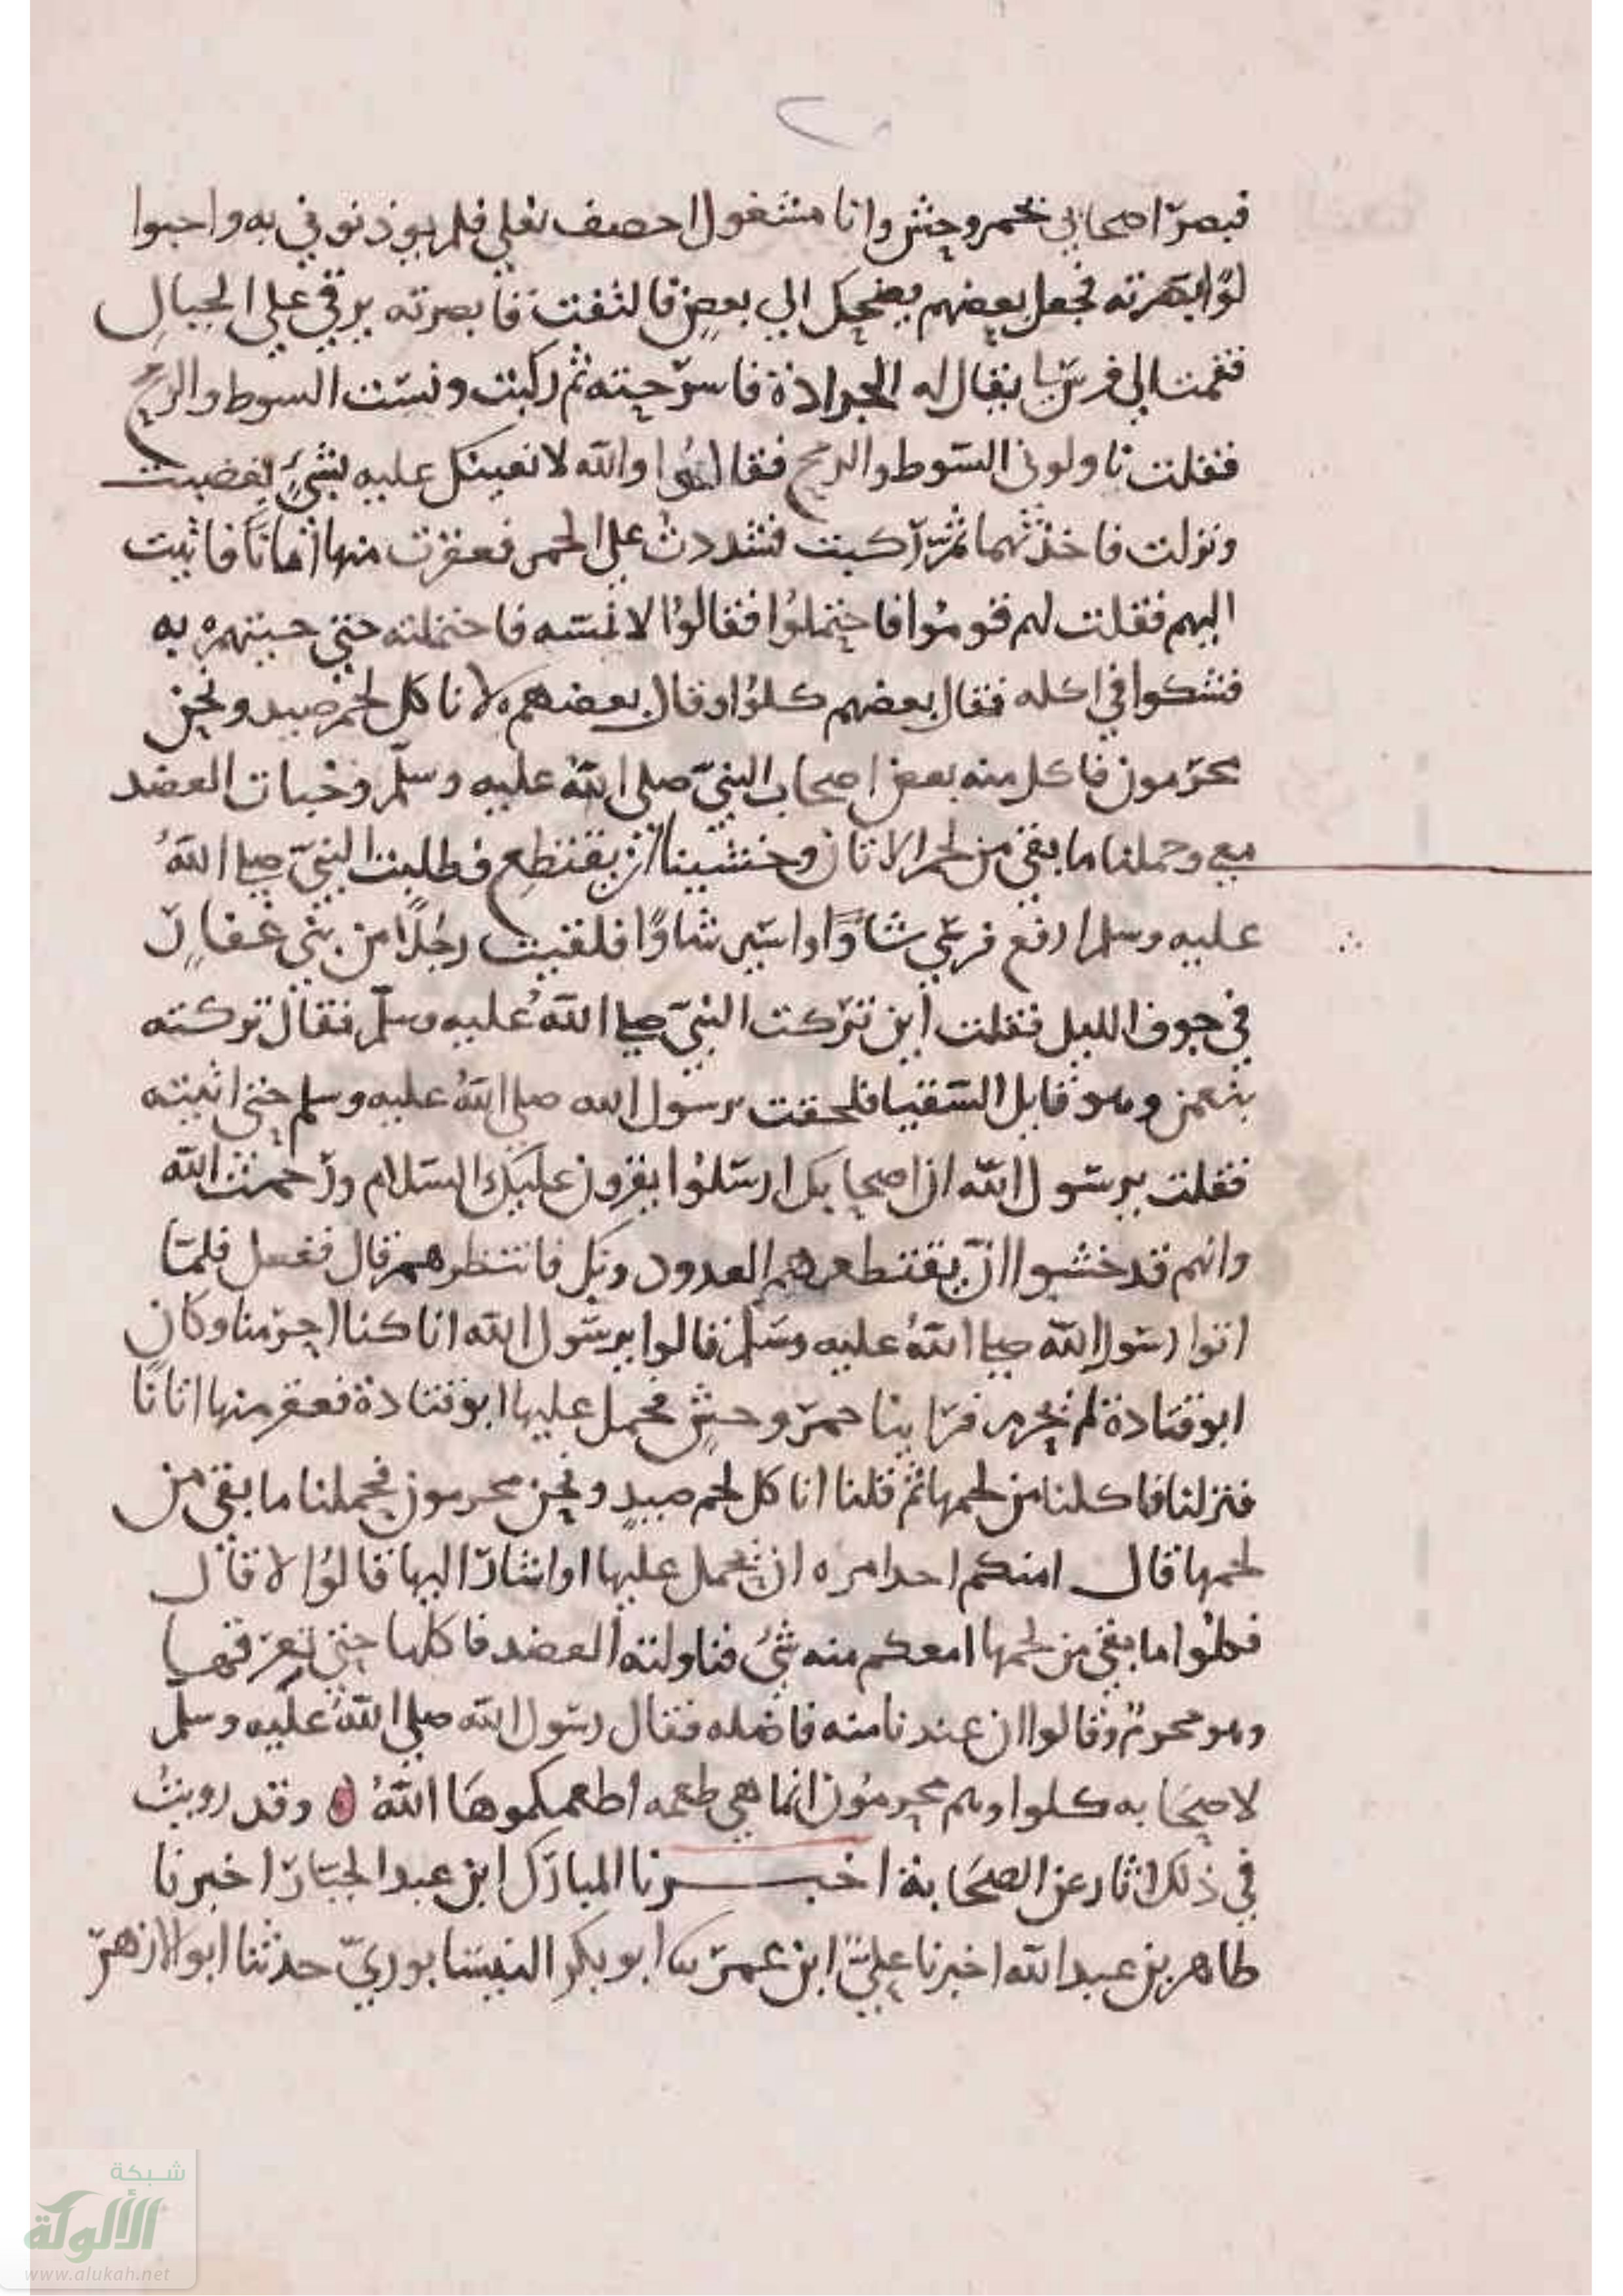 فبصر اصحابي بحمر وحش وانا مشغول احصف نعلي فلم يوذنوني به واحبوا
لوابصرته فجعل بعضهم يضحك الي بعض فالتفت فابصرته يرقي علي الجبال
فقمت الي فرس لنا يقال له الجرادة فاسرجته ثم ركبت ونسيت السوط والرمح
فقلت ناولوني السوط والرمح فقالوا والله لا نعينك عليه بشيء فغضبت
ونزلت فاخذتهما ثم ركبت فشددت علي الحمر فعقرت منها اتانا فاتيت
اليهم فقلت لهم قوموا فاحتملوا فقالوا لا نمسه فاحتملته حتي جيتهم به
فشكوا في اكله فقال بعضهم كلوا وقال بعضهم لا ناكل لحم صيد ونحن
محرمون فاكل منه بعض اصحاب النبي صلي الله عليه وسلم وخبات العضد
معي وحملنا ما بقي من لحم الاتان وخشينا ان يقتطع فطلبت النبي صلي الله
عليه وسلم ارفع فرسي شاوا واسير شاوا فلقيت رجلا من بني غفار
في جوف الليل فقلت اين تركت النبي صلي الله عليه وسلم فقال تركته
بتعهن وهو قايل السقيا فلحقت برسول الله صلي الله عليه وسلم حتي اتيته
فقلت يرسول الله ان اصحابك ارسلوا يقرون عليك السلام ورحمت الله
وانهم قد خشوا ان يقتطعهم العدو دونك فانتظرهم قال ففعل فلما
اتوا رسول الله صلي الله عليه وسلم قالوا يرسول الله انا كنا احرمنا وكان
ابو قتادة لم يحرم فراينا حمر وحش فحمل عليها ابو قتادة فعقر منها اتانا
فنزلنا فاكلنا من لحمها ثم قلنا اناكل لحم صيد ونحن محرمون فحملنا ما بقي من
لحمها قال امنكم احد امره ان يحمل عليها او اشار اليها قالوا لا قال
فكلوا ما بقي من لحمها امعكم منه شيء فناولته العضد فاكلها حتي تعرقها
وهو محرم وقالوا ان عندنا منه فاضله فقال رسول الله صلي الله عليه وسلم
لاصحابه كلوا وهم محرمون انما هي طعمه اطعمكموها الله ه وقد رويت
في ذلك اثار عن الصحابة اخبرنا المبارك ابن عبد الجبار اخبرنا
طاهر بن عبد الله اخبرنا علي ابن عمر نا ابو بكر النيسابوري حدثنا ابو الازهر
شبكة
الألوكة
www.alukah.net